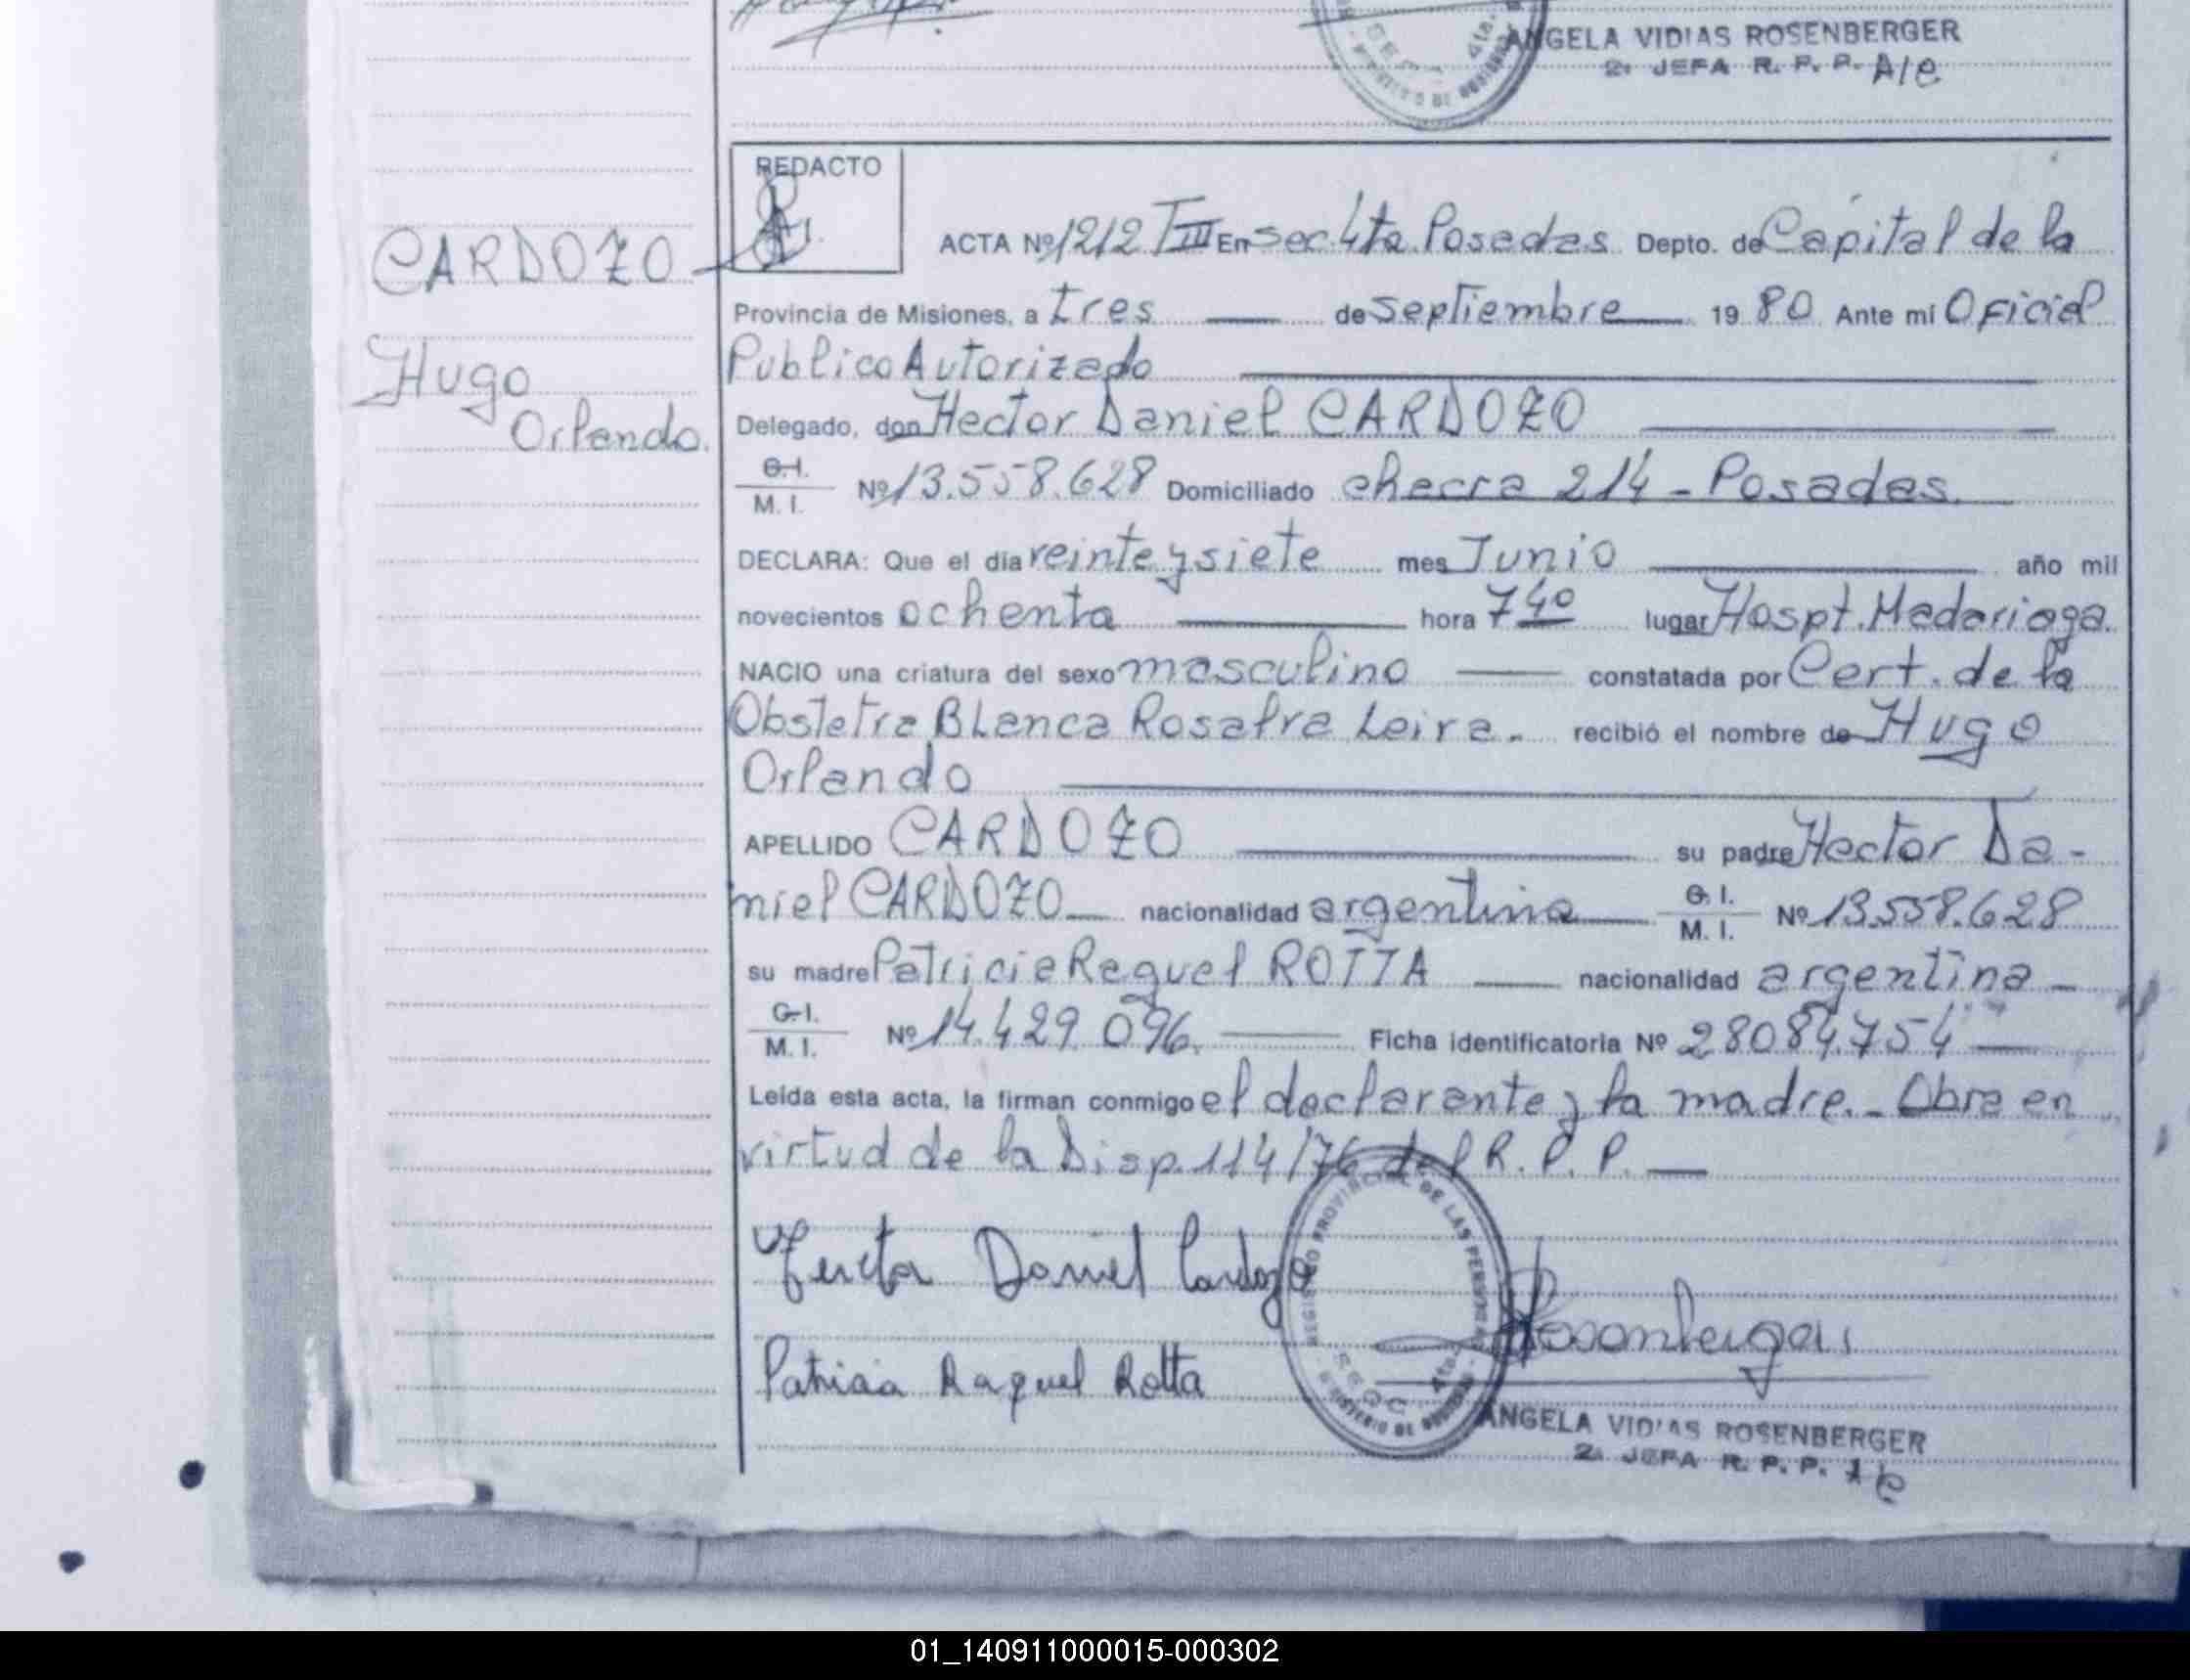 ANGELA VIDIAS ROSENBERGER
2ª JEFA R. P. P. A/C
CARDOZO
Hugo
Orlando.
REDACTO
ACTA Nº 1212 T III En Sec. 4ta. Posadas Depto. de Capital de la
Provincia de Misiones, a tres de septiembre 19 80 Ante mi Oficial
Publico Autorizado
Delegado, don Hector Daniel CARDOZO
C.I.
M. I. Nº 13.558.628 Domiciliado checra 214 - Posadas.
DECLARA: Que el dia veinte y siete mes Junio año mil
novecientos ochenta hora 7 40 lugar Hospt. Madariaga.
NACIO una criatura del sexo masculino constatada por Cert. de la
Obstetra Blanca Rosa Leira. recibió el nombre de Hugo
Orlando
APELLIDO CARDOZO su padre Hector Da-
niel CARDOZO nacionalidad argentina C. I.
M. I. Nº 13.558.628
su madre Patricia Raquel ROTTA nacionalidad argentina
C.I.
M. I. Nº 14.429.096. Ficha identificatoria Nº 28084.754
Leida esta acta, la firman conmigo el declarante y la madre. - Obra en
virtud de la Disp. 114/76 del R. P. P.
Hector Daniel Cardozo
REGISTRO PROVINCIAL DE LAS PERSONAS
SECC 4ta.
MINISTERIO DE GOBIERNO
Rosenberger
Patricia Raquel Rotta
ANGELA VIDIAS ROSENBERGER
2ª JEFA R. P. P. A/C
01_140911000015-000302